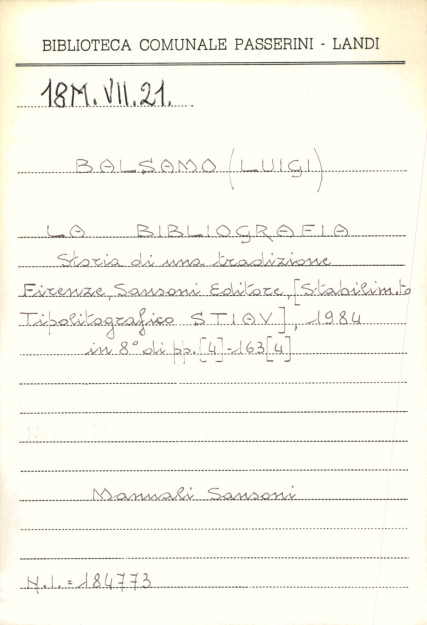 BIBLIOTECA COMUNALE PASSERINI - LANDI
18M.VII.21.
BALSAMO (LUIGI)
LA BIBLIOGRAFIA
Storia di una tradizione
Firenze, Sansoni Editore, [Stabilim.to
Tipolitografico STIAV], 1984
in 8° di pp. [4]-163[4]
Manuali Sansoni
N.I. = 184773